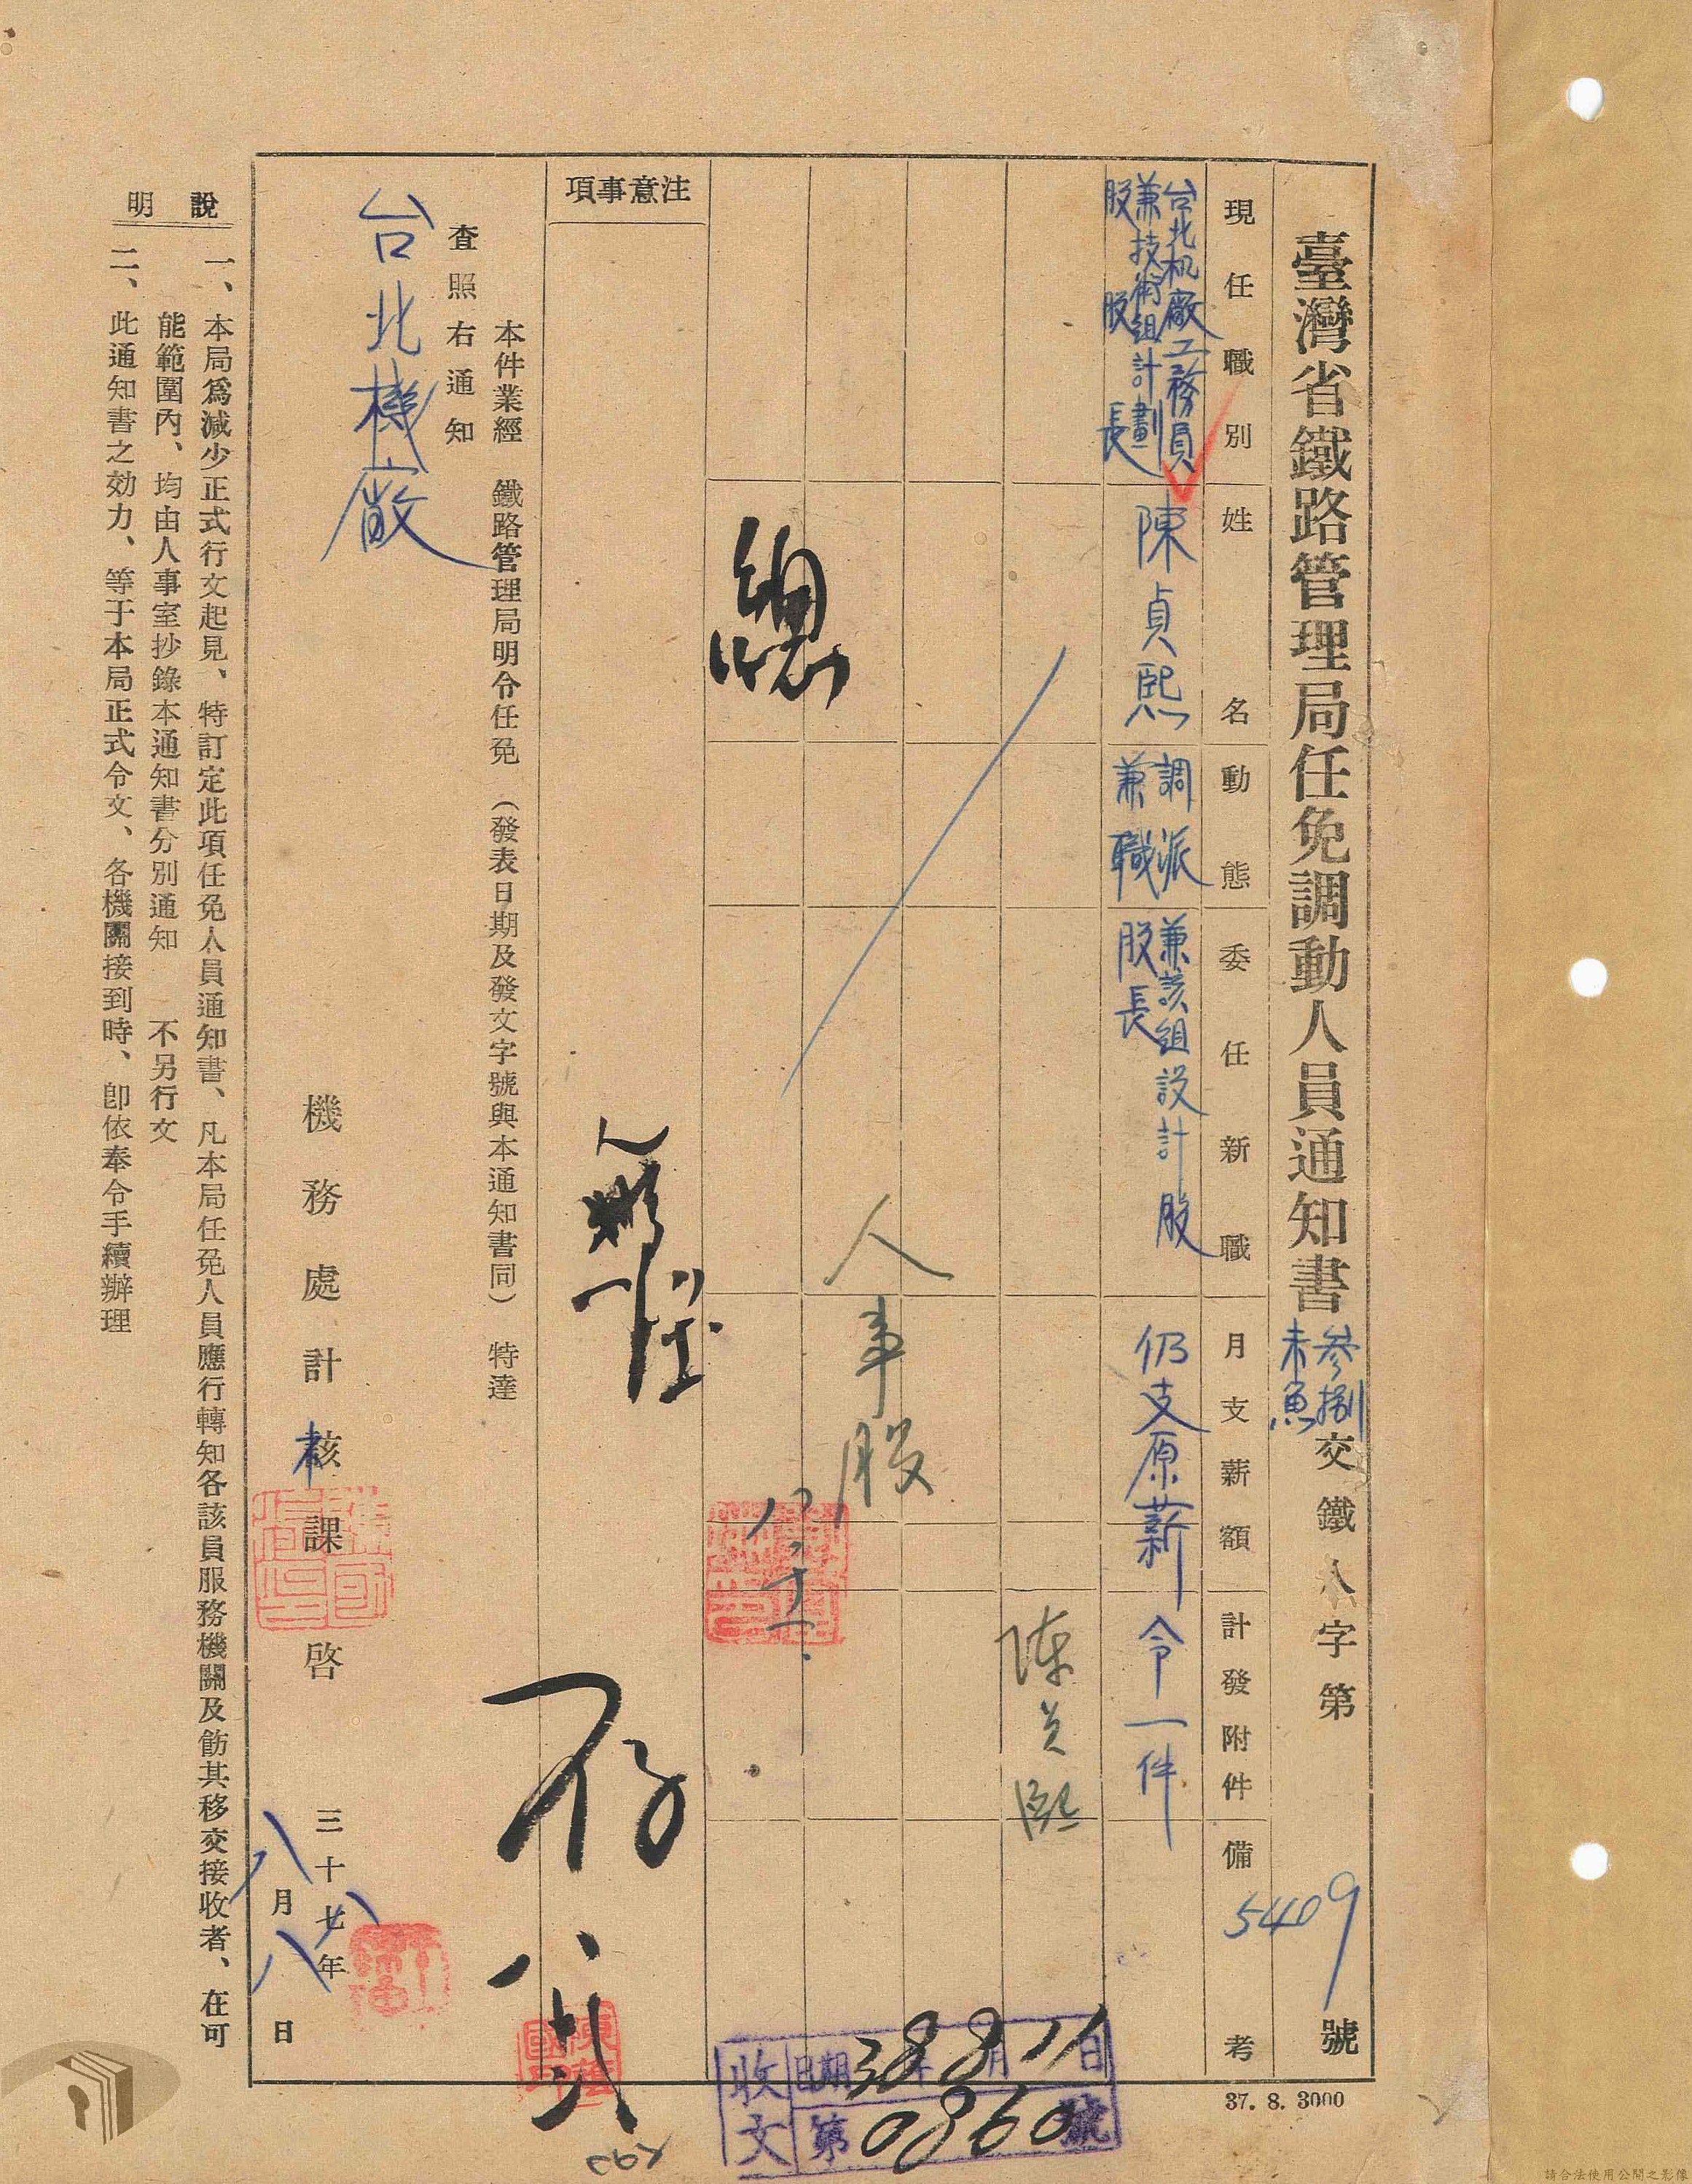 臺灣省鐵路管理局任免調動人員通知書
參捌未魚交鐵人字第5409號
現任職別
姓名
動態
委任新職
月支薪額
計發附件
備考
台北机廠工務員
兼技術組計劃
股股長
陳貞熙
調派
兼職
兼該組設計股
股長
仍支原薪
令一件
陳貞熙
人事股
總
注意事項
存
本件業經 鐵路管理局明令任免 (發表日期及發文字號與本通知書同) 特達
查照右通知
台北機廠
機務處計核課啓
三十八年
八月八日
說明
一、本局爲減少正式行文起見、特訂定此項任免人員通知書、凡本局任免人員應行轉知各該員服務機關及飭其移交接收者、在可
能範圍內、均由人事室抄錄本通知書分別通知 不另行文
二、此通知書之効力、等于本局正式令文、各機關接到時、卽依奉令手續辦理
收文
日期38年8月11日
第0860號
37. 8. 3000
請合法使用公開之影像